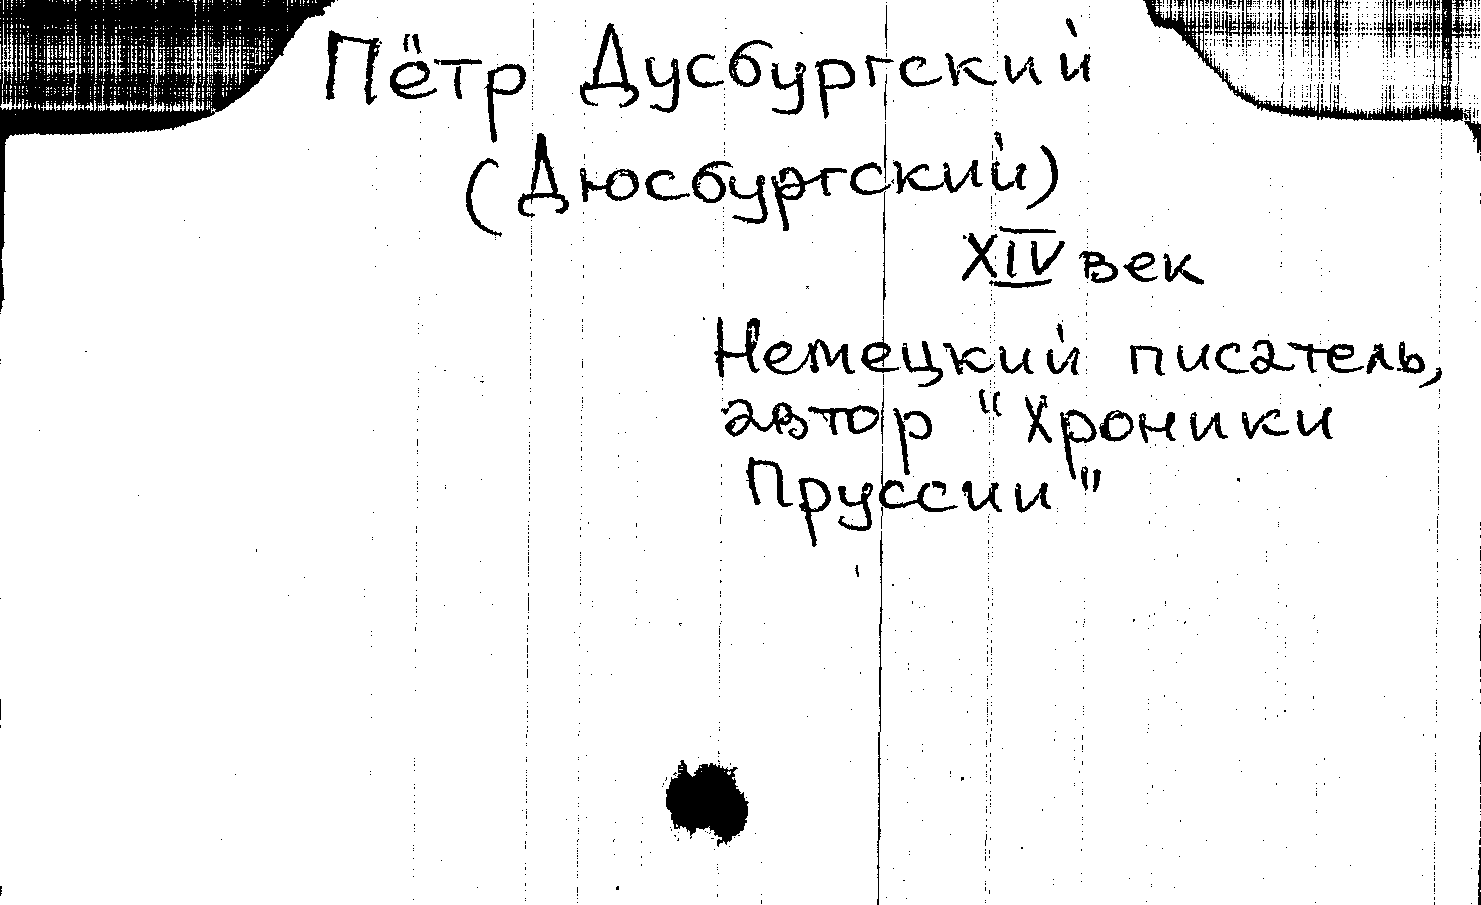 Пётр Дусбургский
(Дюсбургский)
XIV век
Немецкий писатель,
автор "Хроники
Пруссии"